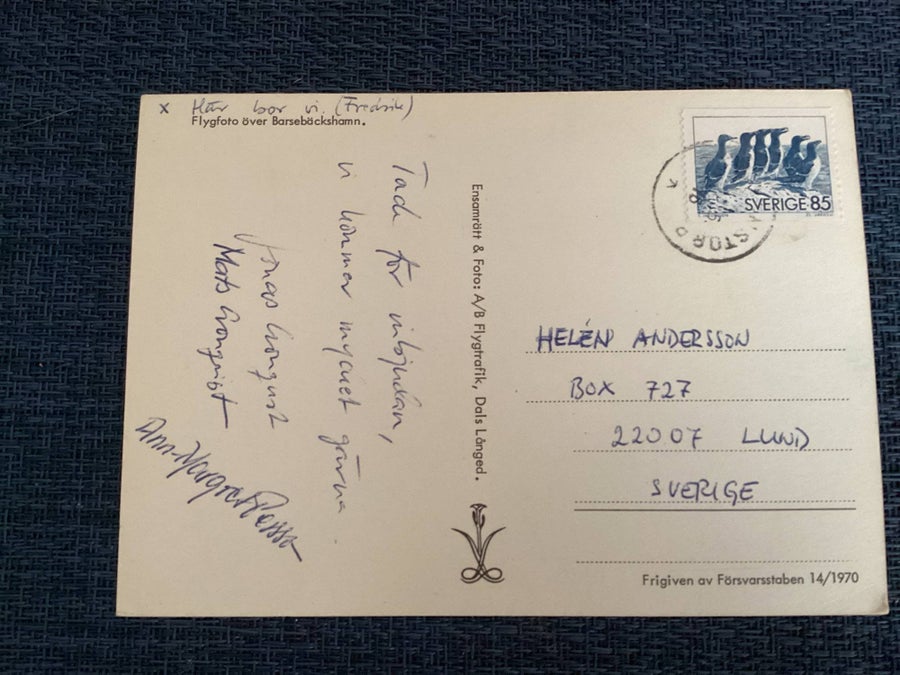 x Här bor vi. (Fredrik)
Flygfoto över Barsebäckshamn.
Tack för inbjudan,
vi kommer mycket gärna.
Jonas
Mats
Ann-Margret Persson
Ensamrätt & Foto: A/B Flygtrafik, Dals Långed.
SVERIGE 85
HELÉN ANDERSSON
BOX 727
22007 LUND
SVERIGE
Frigiven av Försvarsstaben 14/1970